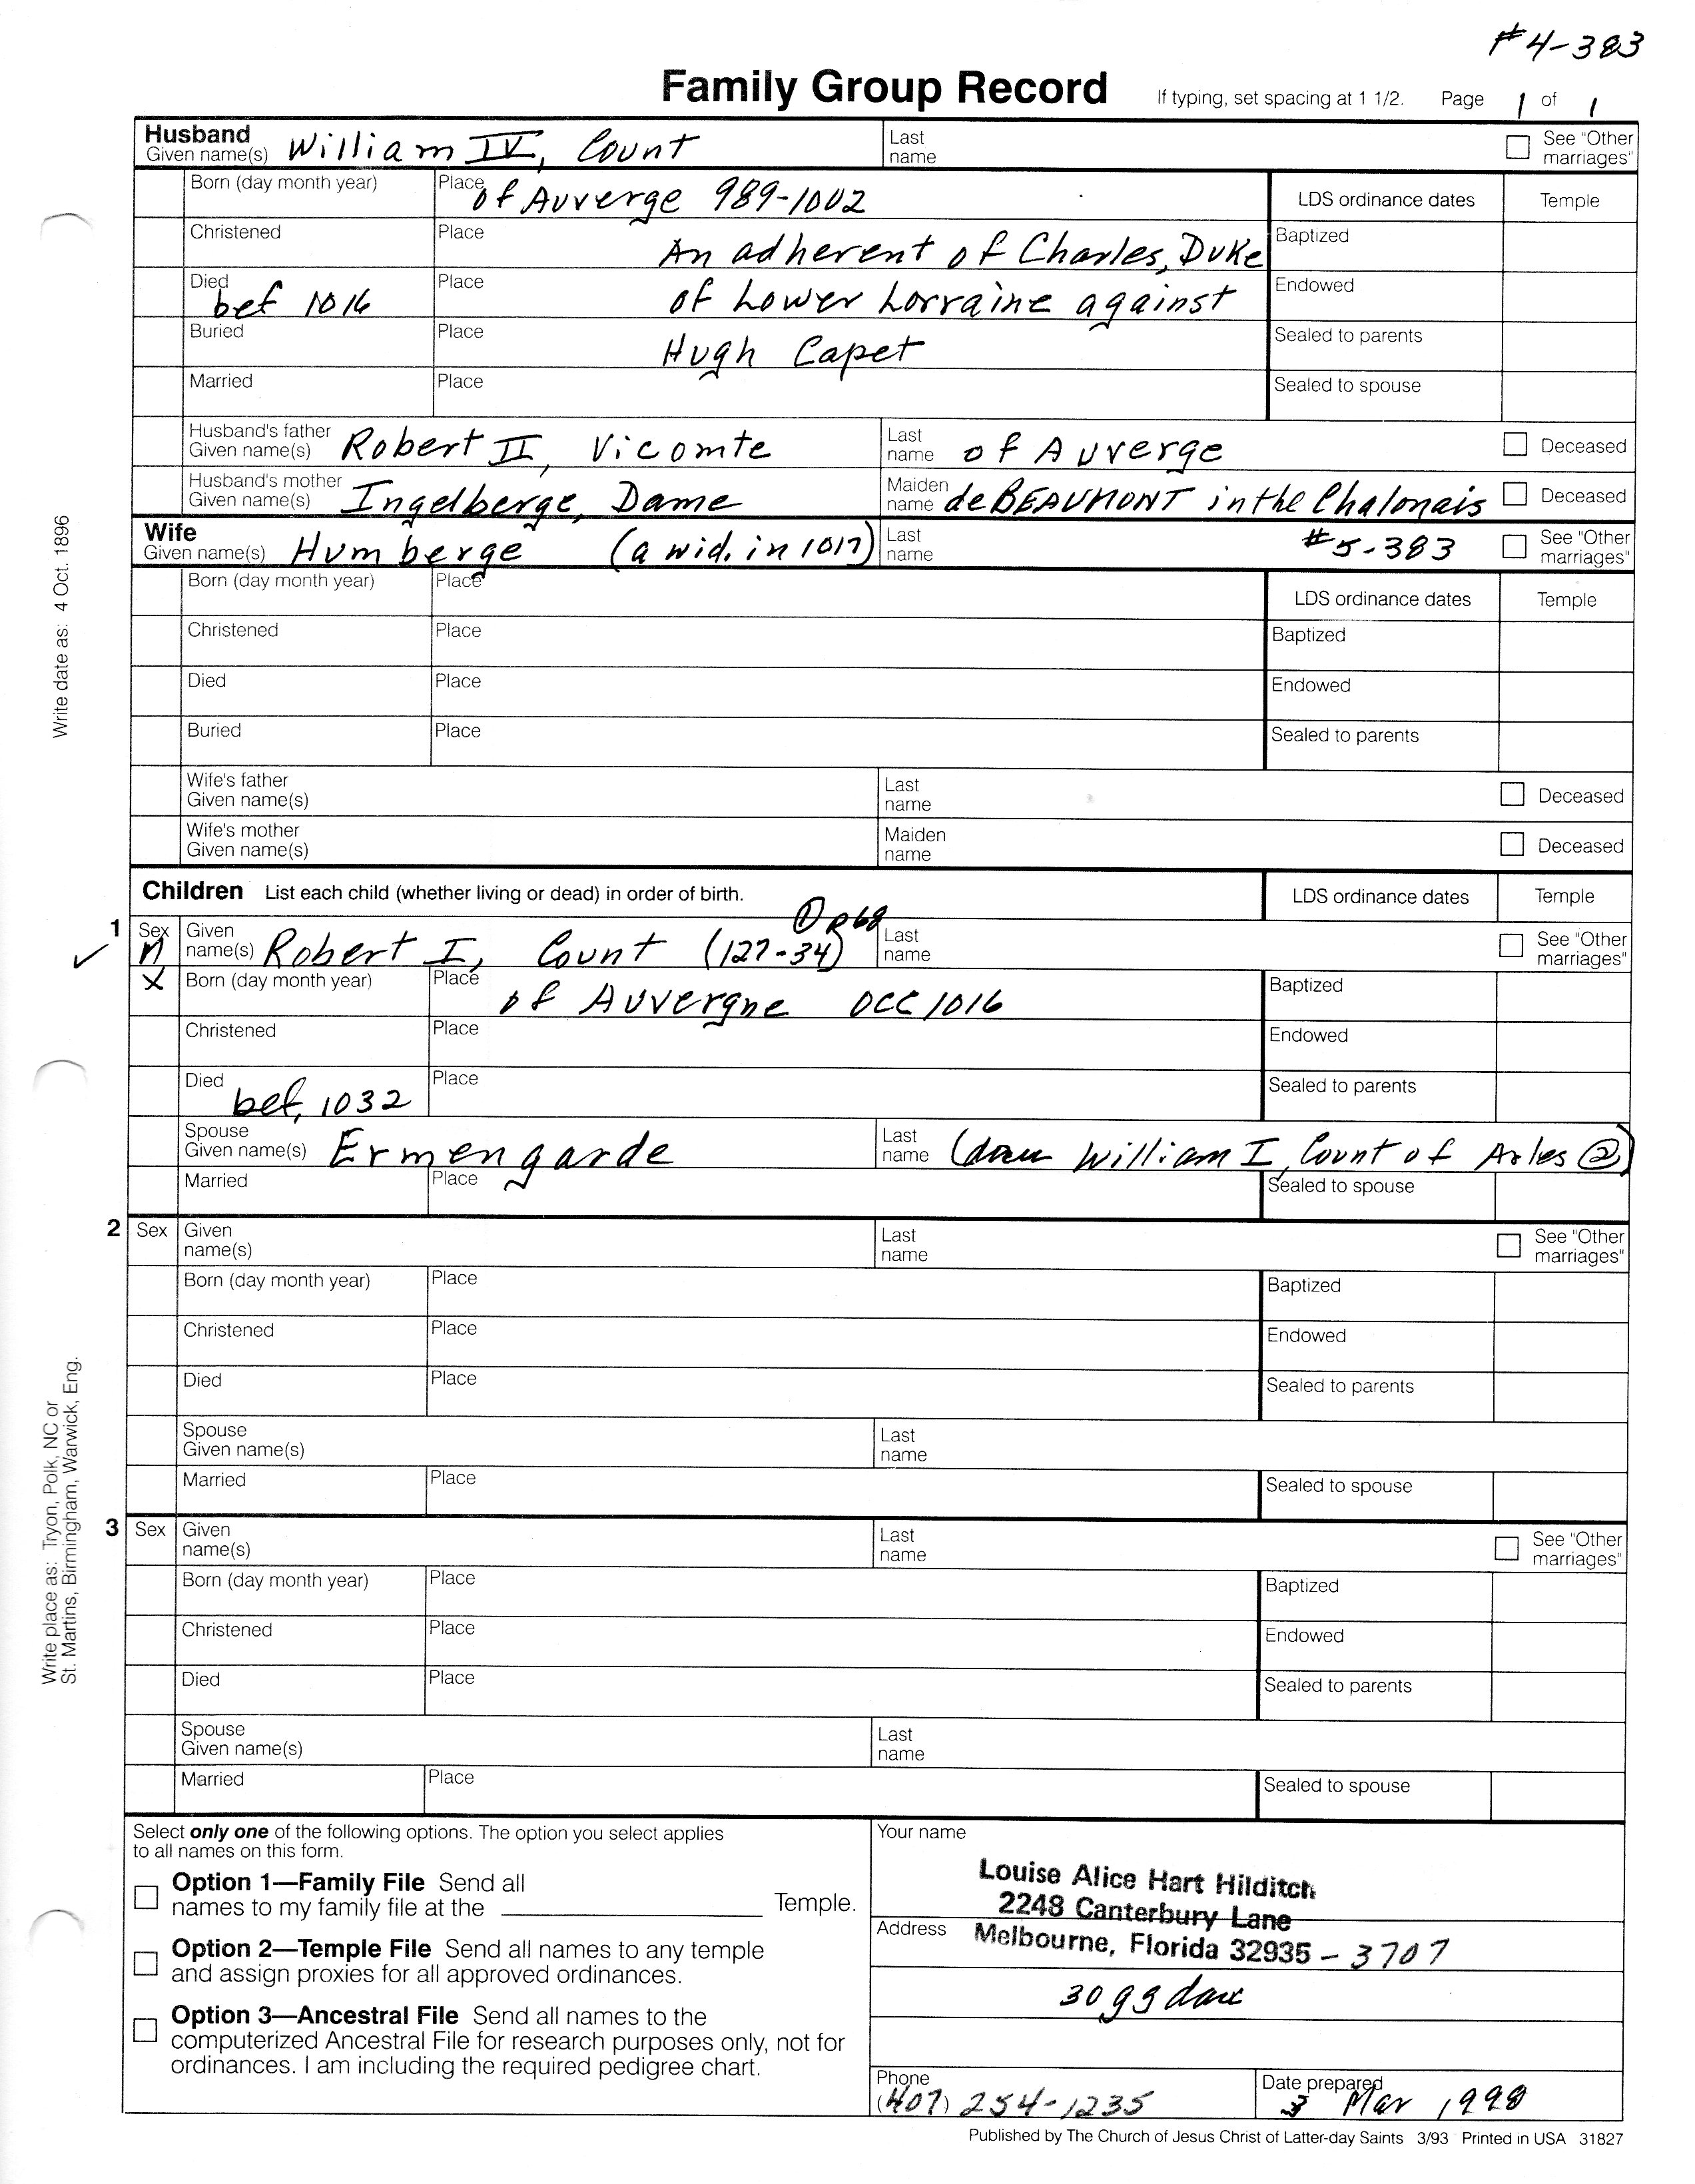 #4-383
Family Group Record If typing, set spacing at 1 1/2. Page 1 of 1
Husband Given name(s) William IV, Count Last name See "Other marriages"
Born (day month year) Place of Auverge 989-1002 LDS ordinance dates Temple
Christened Place An adherent of Charles, Duke Baptized
Died bef 1016 Place of Lower Lorraine against Endowed
Buried Place Hugh Capet Sealed to parents
Married Place Sealed to spouse
Husband's father Given name(s) Robert II, Vicomte Last name of Auverge Deceased
Husband's mother Given name(s) Ingelberge, Dame Maiden name de BEAUMONT in the Chalonais Deceased
Wife Given name(s) Humberge (a wid. in 1017) Last name #5-383 See "Other marriages"
Born (day month year) Place LDS ordinance dates Temple
Christened Place Baptized
Died Place Endowed
Buried Place Sealed to parents
Wife's father Given name(s) Last name Deceased
Wife's mother Given name(s) Maiden name Deceased
Children List each child (whether living or dead) in order of birth. LDS ordinance dates Temple
① p68
1 Sex M Given name(s) Robert I, Count (127-34) Last name See "Other marriages"
X Born (day month year) Place of Auvergne occ 1016 Baptized
Christened Place Endowed
Died bef, 1032 Place Sealed to parents
Spouse Given name(s) Ermengarde Last name (dau William I, Count of Arles ②)
Married Place Sealed to spouse
2 Sex Given name(s) Last name See "Other marriages"
Born (day month year) Place Baptized
Christened Place Endowed
Died Place Sealed to parents
Spouse Given name(s) Last name
Married Place Sealed to spouse
3 Sex Given name(s) Last name See "Other marriages"
Born (day month year) Place Baptized
Christened Place Endowed
Died Place Sealed to parents
Spouse Given name(s) Last name
Married Place Sealed to spouse
Select only one of the following options. The option you select applies
to all names on this form.
Option 1—Family File Send all
names to my family file at the Temple.
Option 2—Temple File Send all names to any temple
and assign proxies for all approved ordinances.
Option 3—Ancestral File Send all names to the
computerized Ancestral File for research purposes only, not for
ordinances. I am including the required pedigree chart.
Your name
Louise Alice Hart Hilditch
2248 Canterbury Lane
Address Melbourne, Florida 32935 - 3707
30 gg dau
Phone (407) 254-1235 Date prepared 3 Mar 1998
Published by The Church of Jesus Christ of Latter-day Saints 3/93 Printed in USA 31827
Write date as: 4 Oct. 1896
Write place as: Tryon, Polk, NC or
St. Martins, Birmingham, Warwick, Eng.